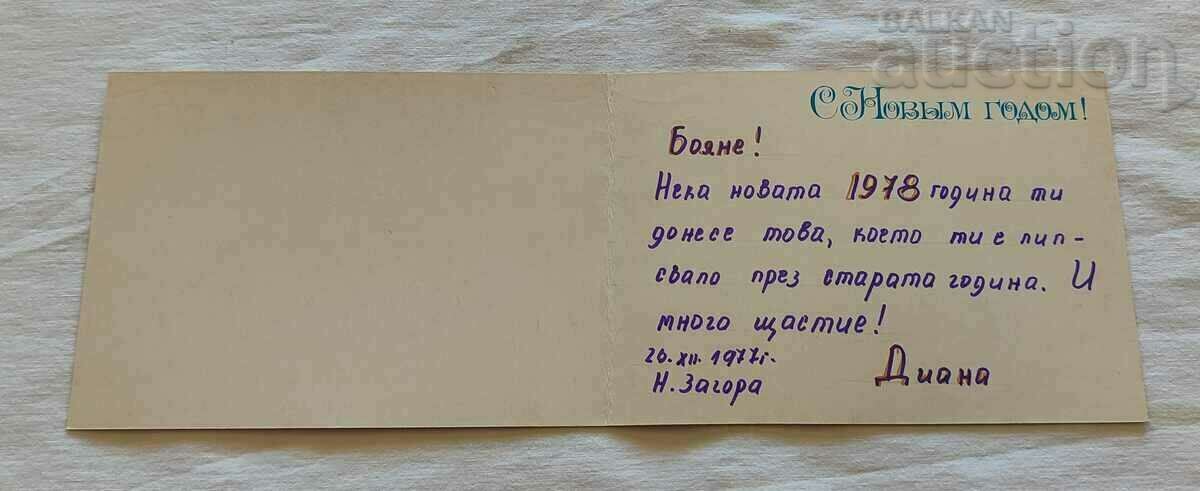 BALKAN
auction
С Новым годом!
Бояне!
Нека новата 1978 година ти
донесе това, което ти е лип-
свало през старата година. И
много щастие!
26.XII.1977г.
Н. Загора
Диана